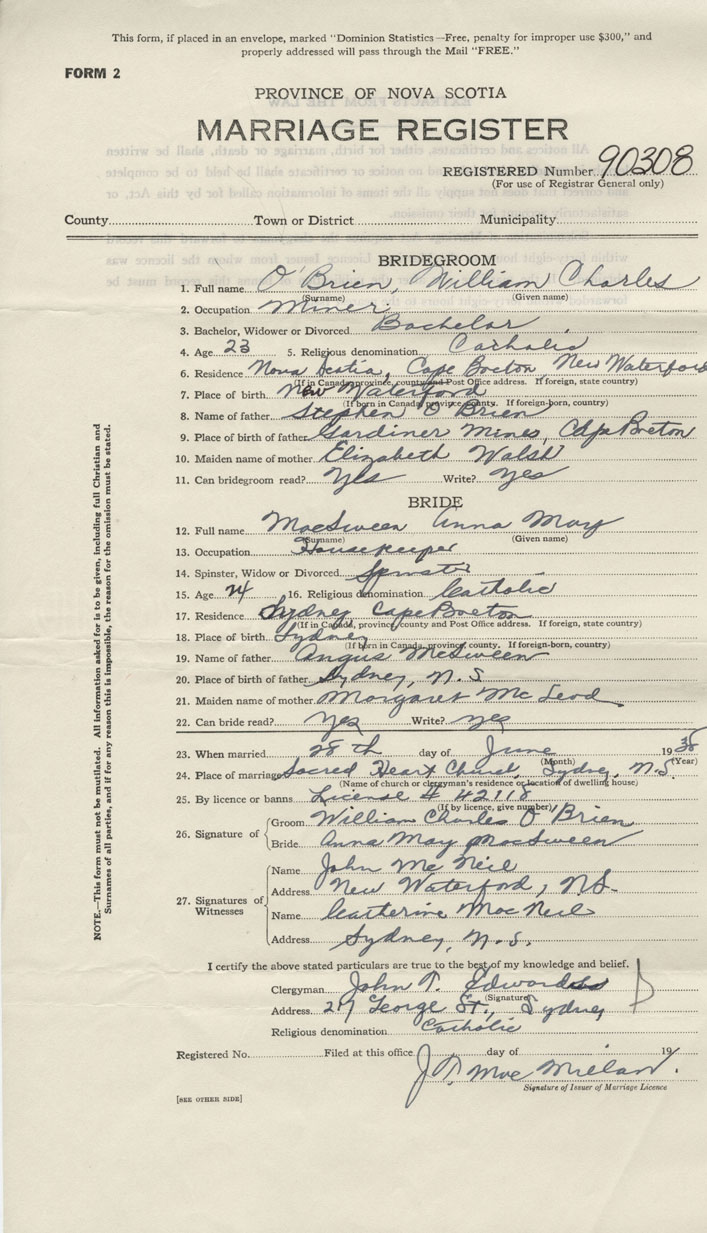 This form, if placed in an envelope, marked "Dominion Statistics—Free, penalty for improper use $300," and
properly addressed will pass through the Mail "FREE."
FORM 2
PROVINCE OF NOVA SCOTIA
MARRIAGE REGISTER
REGISTERED Number 90308
(For use of Registrar General only)
County Town or District Municipality
BRIDEGROOM
1. Full name O'Brien, William Charles
(Surname) (Given name)
2. Occupation Miner
3. Bachelor, Widower or Divorced Bachelor
4. Age 23 5. Religious denomination Catholic
6. Residence Nova Scotia, Cape Breton New Waterford
(If in Canada, province, county and Post Office address. If foreign, state country)
7. Place of birth New Waterford
(If born in Canada, province, county. If foreign-born, country)
8. Name of father Stephen O'Brien
9. Place of birth of father Gardiner Mines, Cape Breton
10. Maiden name of mother Elizabeth Walsh
11. Can bridegroom read? Yes Write? Yes
BRIDE
12. Full name MacSween Anna May
(Surname) (Given name)
13. Occupation Housekeeper
14. Spinster, Widow or Divorced Spinster
15. Age 24 16. Religious denomination Catholic
17. Residence Sydney Cape Breton
(If in Canada, province, county and Post Office address. If foreign, state country)
18. Place of birth Sydney
(If born in Canada, province, county. If foreign-born, country)
19. Name of father Angus McSween
20. Place of birth of father Sydney, N.S
21. Maiden name of mother Margaret McLeod
22. Can bride read? Yes Write? Yes
23. When married 28th day of June 1938
(Month) (Year)
24. Place of marriage Sacred Heart Church, Sydney, N.S.
(Name of church or clergyman's residence or location of dwelling house)
25. By licence or banns License # 42118
(If by licence, give number)
26. Signature of Groom William Charles O'Brien
Bride Anna May MacSween
27. Signatures of Witnesses
Name John McNeil
Address New Waterford, NS.
Name Catherine MacNeil
Address Sydney, N.S.
I certify the above stated particulars are true to the best of my knowledge and belief.
Clergyman John T. Edwards
(Signature)
Address 217 George St., Sydney
Religious denomination Catholic
Registered No. Filed at this office day of 19
MacMillan.
Signature of Issuer of Marriage Licence
[SEE OTHER SIDE]
NOTE.—This form must not be mutilated. All information asked for is to be given, including full Christian and
Surnames of all parties, and if for any reason this is impossible, the reason for the omission must be stated.